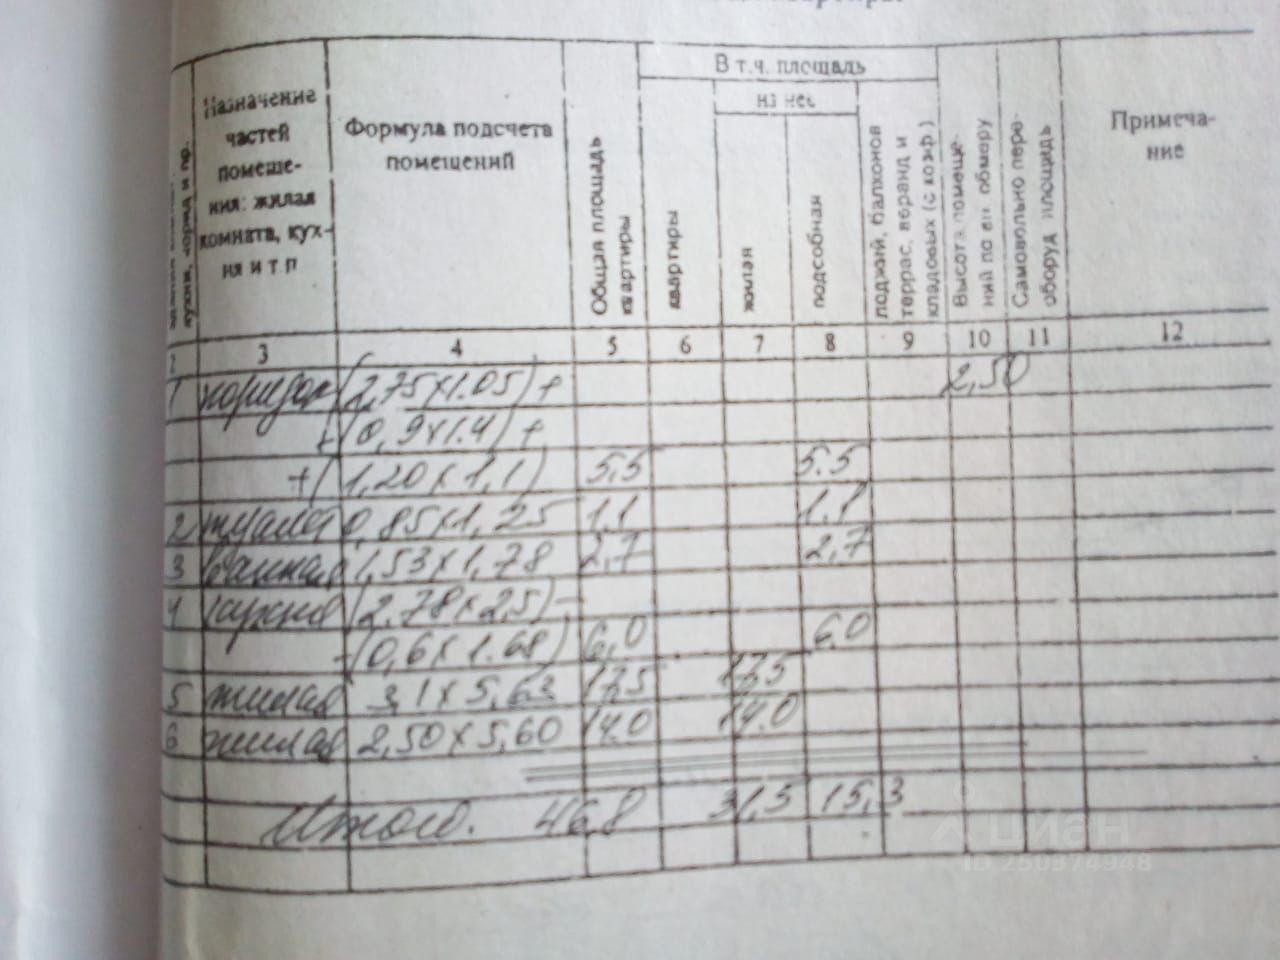 кухни, корид и пр.
Назначение
частей
помеще-
ния: жилая
комната, кух-
ня и т.п
Формула подсчета
помещений
Общая площадь
квартиры
В т.ч. площадь
из нее
квартиры
жилая
подсобная
лоджий, балконов
террас, веранд и
кладовых (с коэф.)
Высота помеще-
ний по вн. обмеру
Самовольно пере-
оборуд площадь
Примеча-
ние
2 3 4 5 6 7 8 9 10 11 12
1 коридор (2,75x1.05)+ 2,50
+(0,9x1.4)+
+(1,20x1,1) 5,5 5.5
2 туалет 0,85x1,25 1.1 1.1
3 ванная 1,53x1,78 2,7 2,7
4 кухня (2.78x2,5)-
-(0,6x1.68) 6,0 6.0
5 жилая 3,1x5,63 17,5 17,5
6 жилая 2,50x5,60 14.0 14.0
Итого. 46,8 31,5 15,3
циан
ID 250374948